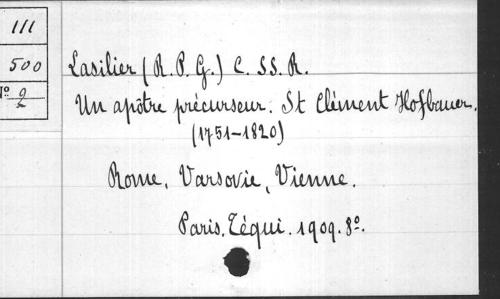 111
500
No 9/2
Lasilier (R. P. G.) C. SS. R.
Un apôtre précurseur. St Clément Hofbauer.
(1751-1820)
Rome, Varsovie, Vienne.
Paris. Téqui. 1909. 8º.